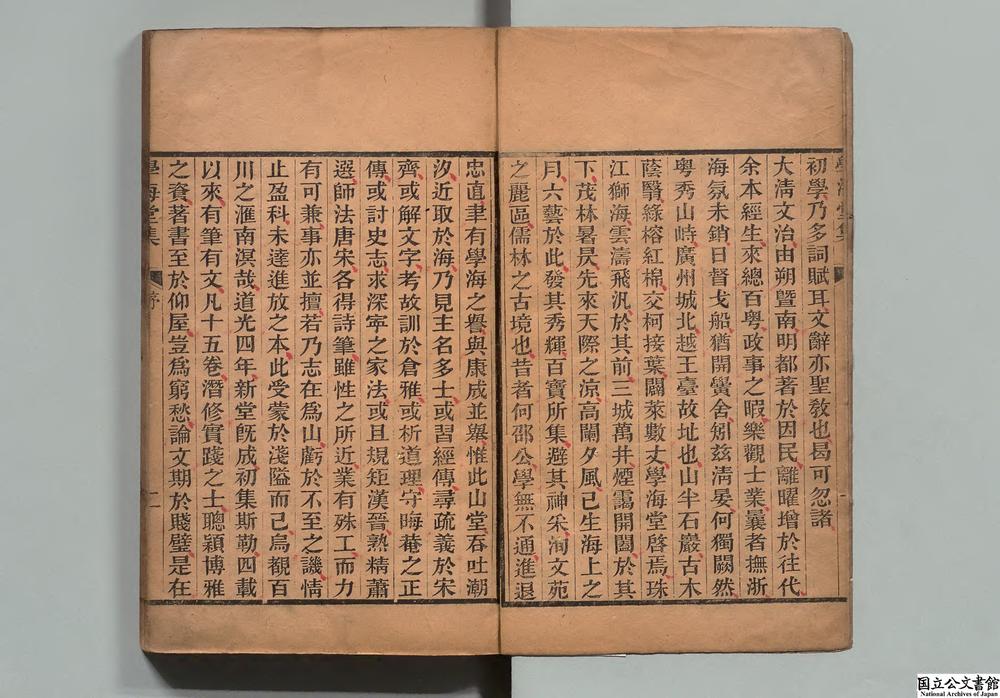 初學乃多詞賦耳文辭亦聖敎也曷可忽諸
大淸文治由朔曁南明都著於因民離曜增於往代
余本經生來總百粤政事之暇樂觀士業曩者撫浙
海氛未銷日督戈船猶開黌舍矧兹淸晏何獨闕然
粤秀山峙廣州城北越王臺故址也山半石巖古木
蔭翳綠榕紅棉交柯接葉闢萊數丈學海堂啓焉珠
江獅海雲濤飛汎於其前三城萬井煙靄開闔於其
下茂林暑昃先來天際之涼高闌夕風已生海上之
月六藝於此發其秀輝百寶所集避其神采洵文苑
之麗區儒林之古境也昔者何邵公學無不通進退
忠直聿有學海之譽與康成並舉惟此山堂吞吐潮
汐近取於海乃見主名多士或習經傳尋疏義於宋
齊或解文字考故訓於倉雅或析道理守晦菴之正
傳或討史志求深寧之家法或且規矩漢晉熟精蕭
選師法唐宋各得詩筆雖性之所近業有殊工而力
有可兼事亦並擅若乃志在爲山虧於不至之譏情
止盈科未達進放之本此受蒙於淺隘而已烏覩百
川之滙南溟哉道光四年新堂旣成初集斯勒四載
以來有筆有文凡十五卷潛修實踐之士聰穎博雅
之資著書至於仰屋豈爲窮愁論文期於賤璧是在
學海堂集
序
二
国立公文書館
National Archives of Japan